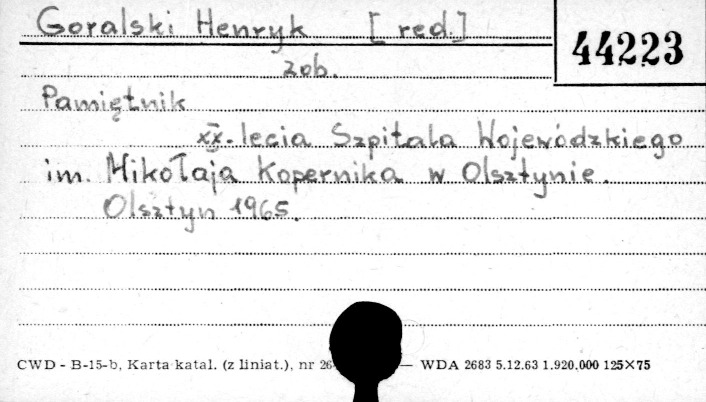 Goralski Henryk [red.]
44223
zob.
Pamiętnik
xx-lecia Szpitala Wojewódzkiego
im. Mikołaja Kopernika w Olsztynie.
Olsztyn 1965.
CWD - B-15-b, Karta katal. (z liniat.), nr — WDA 2683 5.12.63 1.920.000 125×75